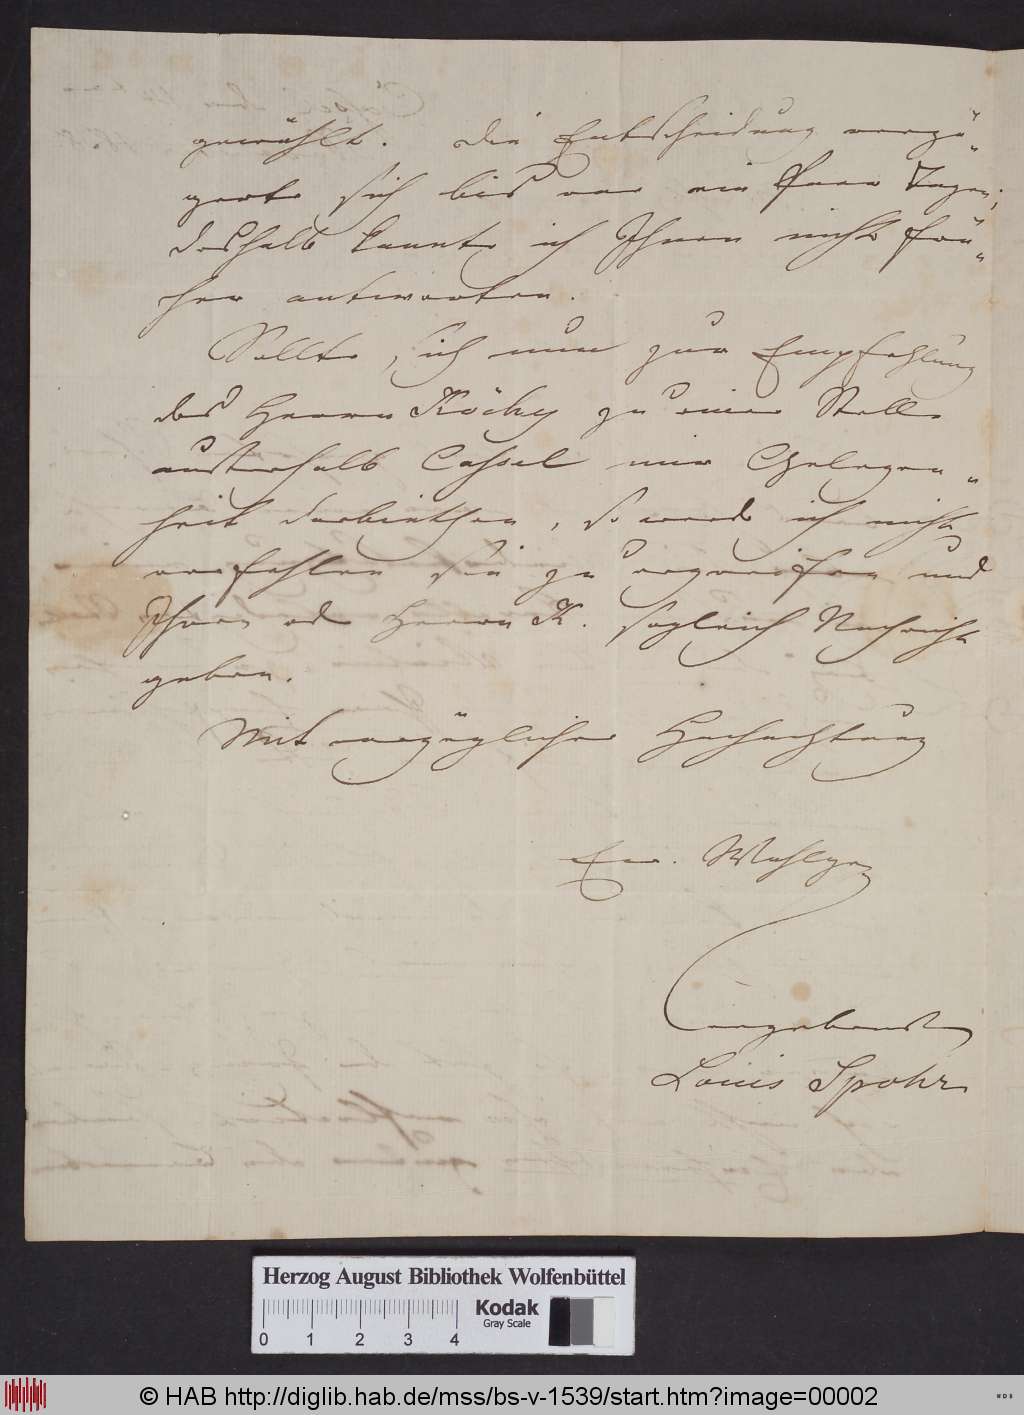 gewählt. Die Entscheidung verzö-
gerte sich bis vor ein Paar Tagen;
deshalb konnte ich Ihnen nicht frü-
her antworten.
Sollte sich nun zur Empfehlung
des Herrn Köchy zu einer Stelle
ausserhalb Cassel mir Gelegen-
heit darbiethen, so werde ich nicht
verfehlen sie zu ergreifen und
Ihnen od Herrn K. sogleich Nachricht
geben.
Mit vorzüglicher Hochachtung
Ew. Wohlgeb
ergebenster
Louis Spohr
Herzog August Bibliothek Wolfenbüttel
Kodak
Gray Scale
0 1 2 3 4
© HAB http://diglib.hab.de/mss/bs-v-1539/start.htm?image=00002